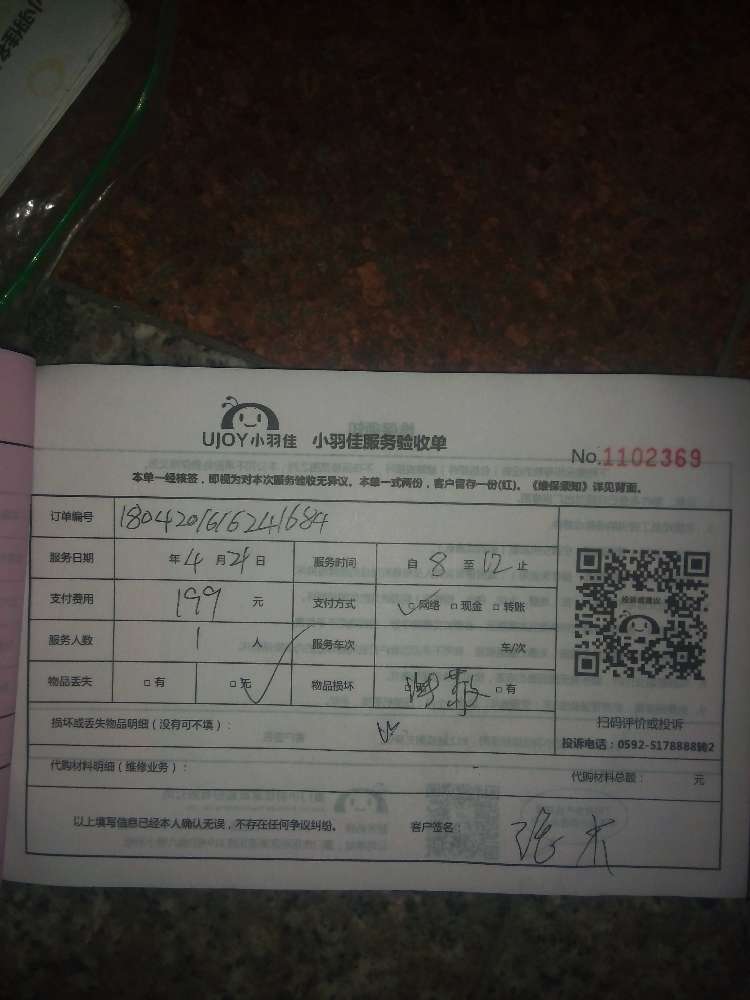 UJOY小羽佳 小羽佳服务验收单
No.1102369
本单一经核签，即视为对本次服务验收无异议。本单一式两份，客户留存一份(红)。《维保须知》详见背面。
订单编号 1804201616241684
服务日期 年4月21日 服务时间 自8至12止
支付费用 199元 支付方式 □网络 □现金 □转账
服务人数 1人 服务车次 车/次
物品丢失 □有 □无 物品损坏 □有
损坏或丢失物品明细（没有可不填）：
代购材料明细（维修业务）： 代购材料总额： 元
以上填写信息已经本人确认无误，不存在任何争议纠纷。 客户签名：
投诉或建议
扫码评价或投诉
投诉电话：0592-5178888转2